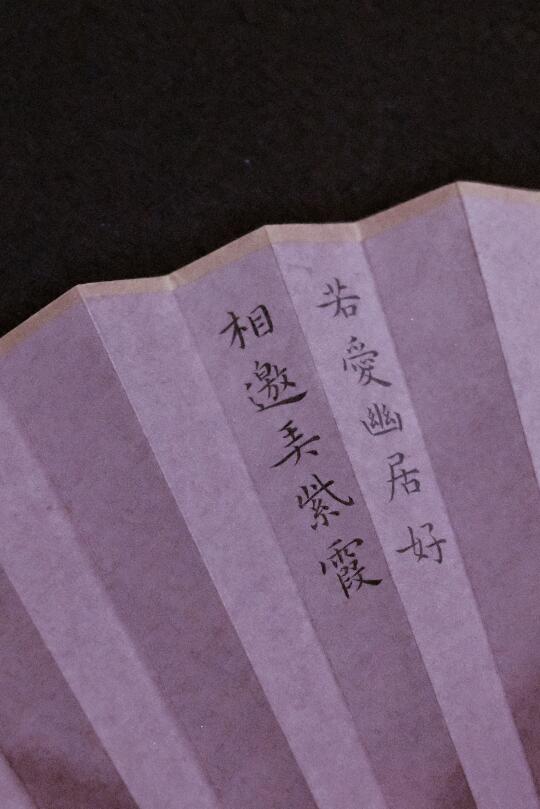 若愛幽居好
相邀弄紫霞